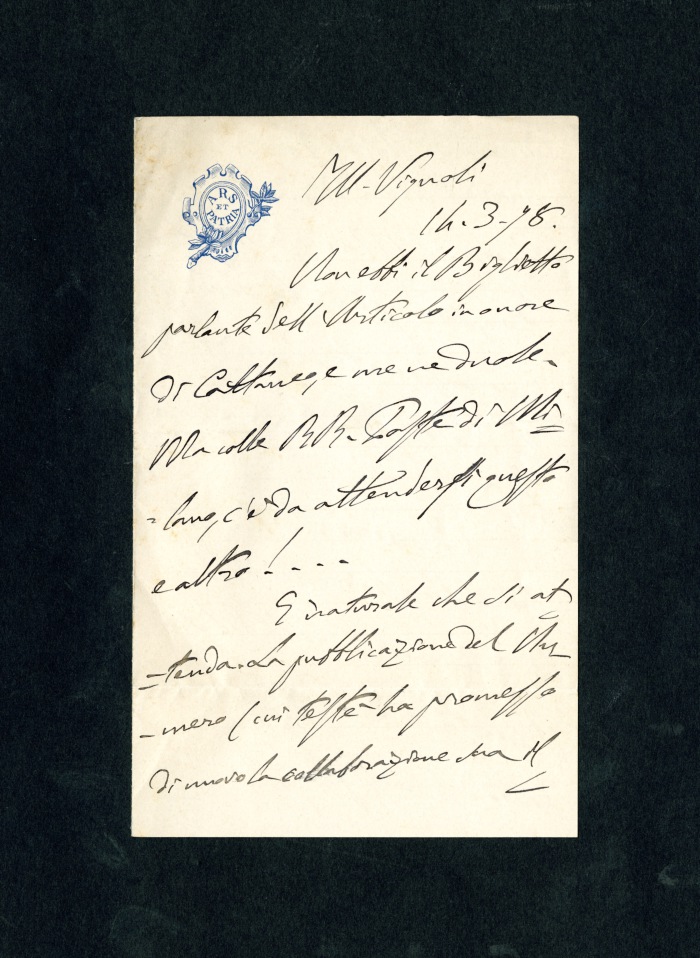 ARS
ET
PATRIA
Ill. Vignoli
14-3-98.
Non ebbi il Biglietto
parlante dell'Articolo in onore
di Cattaneo, e me ne duole.
Ma colle RR. Poste di Mi
=lano, c'è da attendersi questo
e altro! ....
È naturale che si at
=tenda la pubblicazione del Nu
=mero (cui testè ha promesso
di nuovo la collaborazione sua il